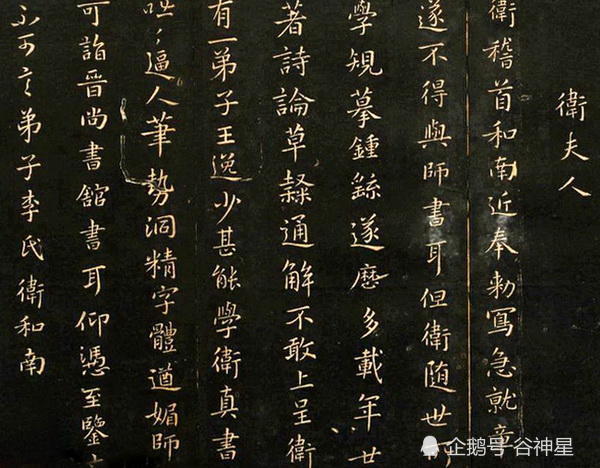 衛夫人
衛稽首和南近奉勅寫急就章
遂不得與師書耳但衛隨世
學規摹鍾繇遂歷多載年廿
著詩論草隸通解不敢上呈衛
有一弟子王逸少甚能學衛真書
咄〻逼人筆勢洞精字體遒媚師
可詣晉尚書館書耳仰憑至鑒
不可言弟子李氏衛和南
企鹅号·谷神星